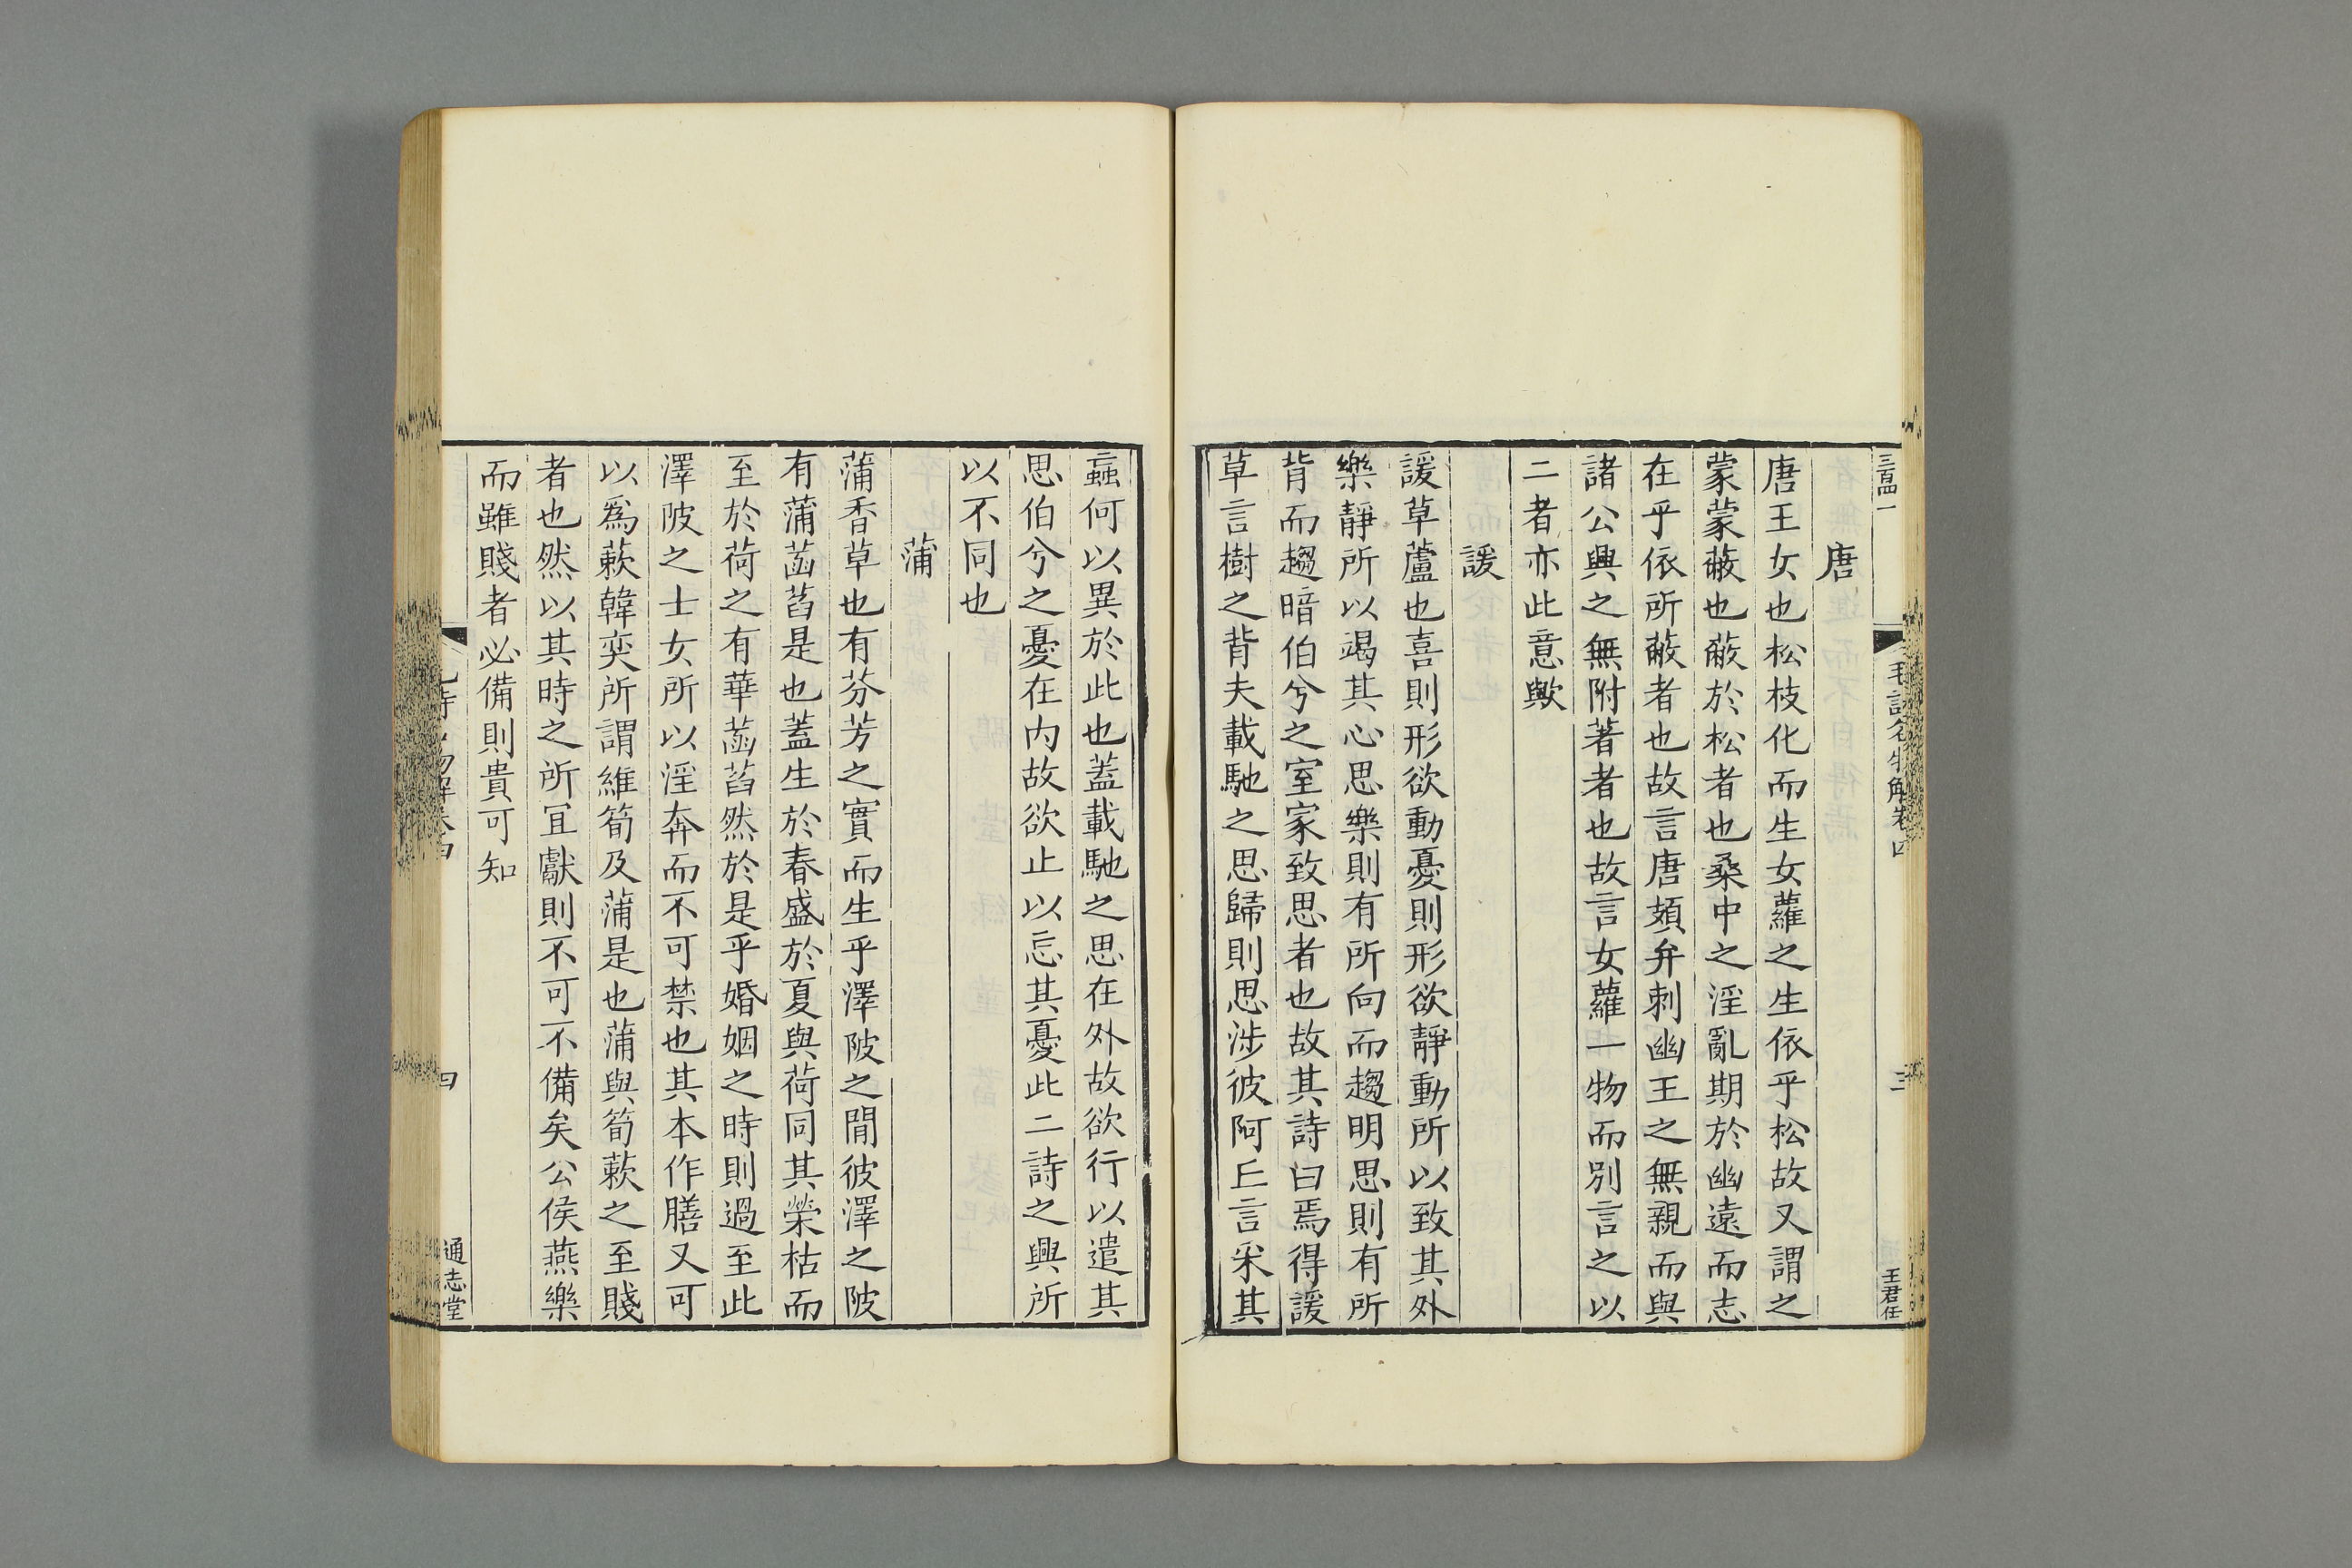 毛詩名物解卷四
三
王君任
唐
唐王女也松枝化而生女蘿之生依乎松故又謂之
蒙蒙蔽也蔽於松者也桑中之淫亂期於幽遠而志
在乎依所蔽者也故言唐頍弁刺幽王之無親而與
諸公興之無附著者也故言女蘿一物而別言之以
二者亦此意歟
諼
諼草蘆也喜則形欲動憂則形欲靜動所以致其外
樂靜所以竭其心思樂則有所向而趨明思則有所
背而趨暗伯兮之室家致思者也故其詩曰焉得諼
草言樹之背夫載馳之思歸則思涉彼阿丘言采其
蝱何以異於此也蓋載馳之思在外故欲行以遣其
思伯兮之憂在内故欲止以忘其憂此二詩之興所
以不同也
蒲
蒲香草也有芬芳之實而生乎澤陂之間彼澤之陂
有蒲菡萏是也蓋生於春盛於夏與荷同其榮枯而
至於荷之有華菡萏然於是乎婚姻之時則過至此
澤陂之士女所以淫奔而不可禁也其本作膳又可
以爲蔌韓奕所謂維筍及蒲是也蒲與筍蔌之至賤
者也然以其時之所宜獻則不可不備矣公侯燕樂
而雖賤者必備則貴可知
四
通志堂